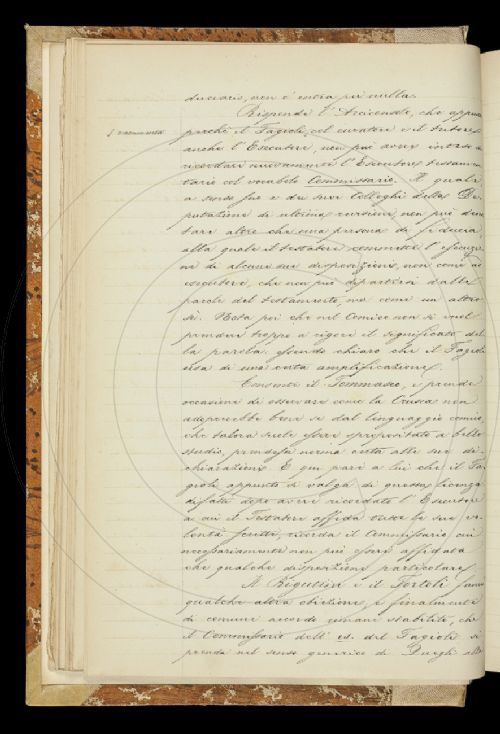 duciario, non c'entra per nulla.
Risponde l'Arciconsolo, che appun
perchè il Fagiuoli, col curatore e il tutore
anche l'Esecutore, non può avere inteso
ricordare nuovamente l'Esecutore testamen
tario col vocabolo Commissario. Il quale
a senso suo e dei suoi Colleghi della De
putazione di ultima revisione non può deno
tare altro che una persona di fiducia
alla quale il testatore commette l'esecuzio
ne di alcune sue disposizioni, non come ad
esecutore, che non può dipartirsi dalle
parole del testamento, ma come un altro
sè. Nota poi che nel Comico non si vuol
prendere troppo a rigore il significato del
la parola, essendo chiaro che il Fagiuoli
usa di una certa amplificazione.
Consente il Tommaseo, e prende
occasione di osservare come la Crusca non
adoprerebbe bene se dal linguaggio comico,
che talora suole essere spropositato a bello
studio, prendesse norma certa alle sue di
chiarazioni. E qui pare a lui che il Fa
giuoli appunto si valga di questa licenza
difatti dopo avere ricordato l'Esecutore
a cui il Testatore affida tutte le sue vo
lontà scritte, ricorda il Commissario cui
necessariamente non può essere affidata
che qualche disposizione particolare
Il Rigutini e il Tortoli fanno
qualche altra obiezione, e finalmente
di comune accordo rimane stabilito, che
il Commissario dell'es. del Fagiuoli si
prenda nel senso generico di Quegli alla